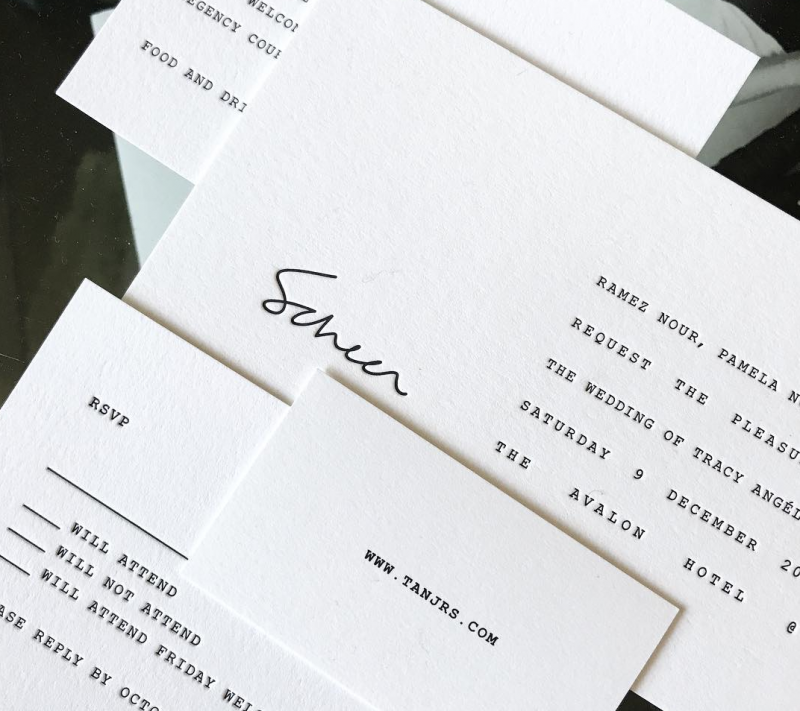 WELCOM
EGENCY COUR
FOOD AND DRI
Scheer
RAMEZ NOUR, PAMELA N
REQUEST THE PLEASU
THE WEDDING OF TRACY ANGÉL
SATURDAY 9 DECEMBER 20
THE AVALON HOTEL @
RSVP
WILL ATTEND
WILL NOT ATTEND
WILL ATTEND FRIDAY WELC
ASE REPLY BY OCTO
WWW.TANJRS.COM